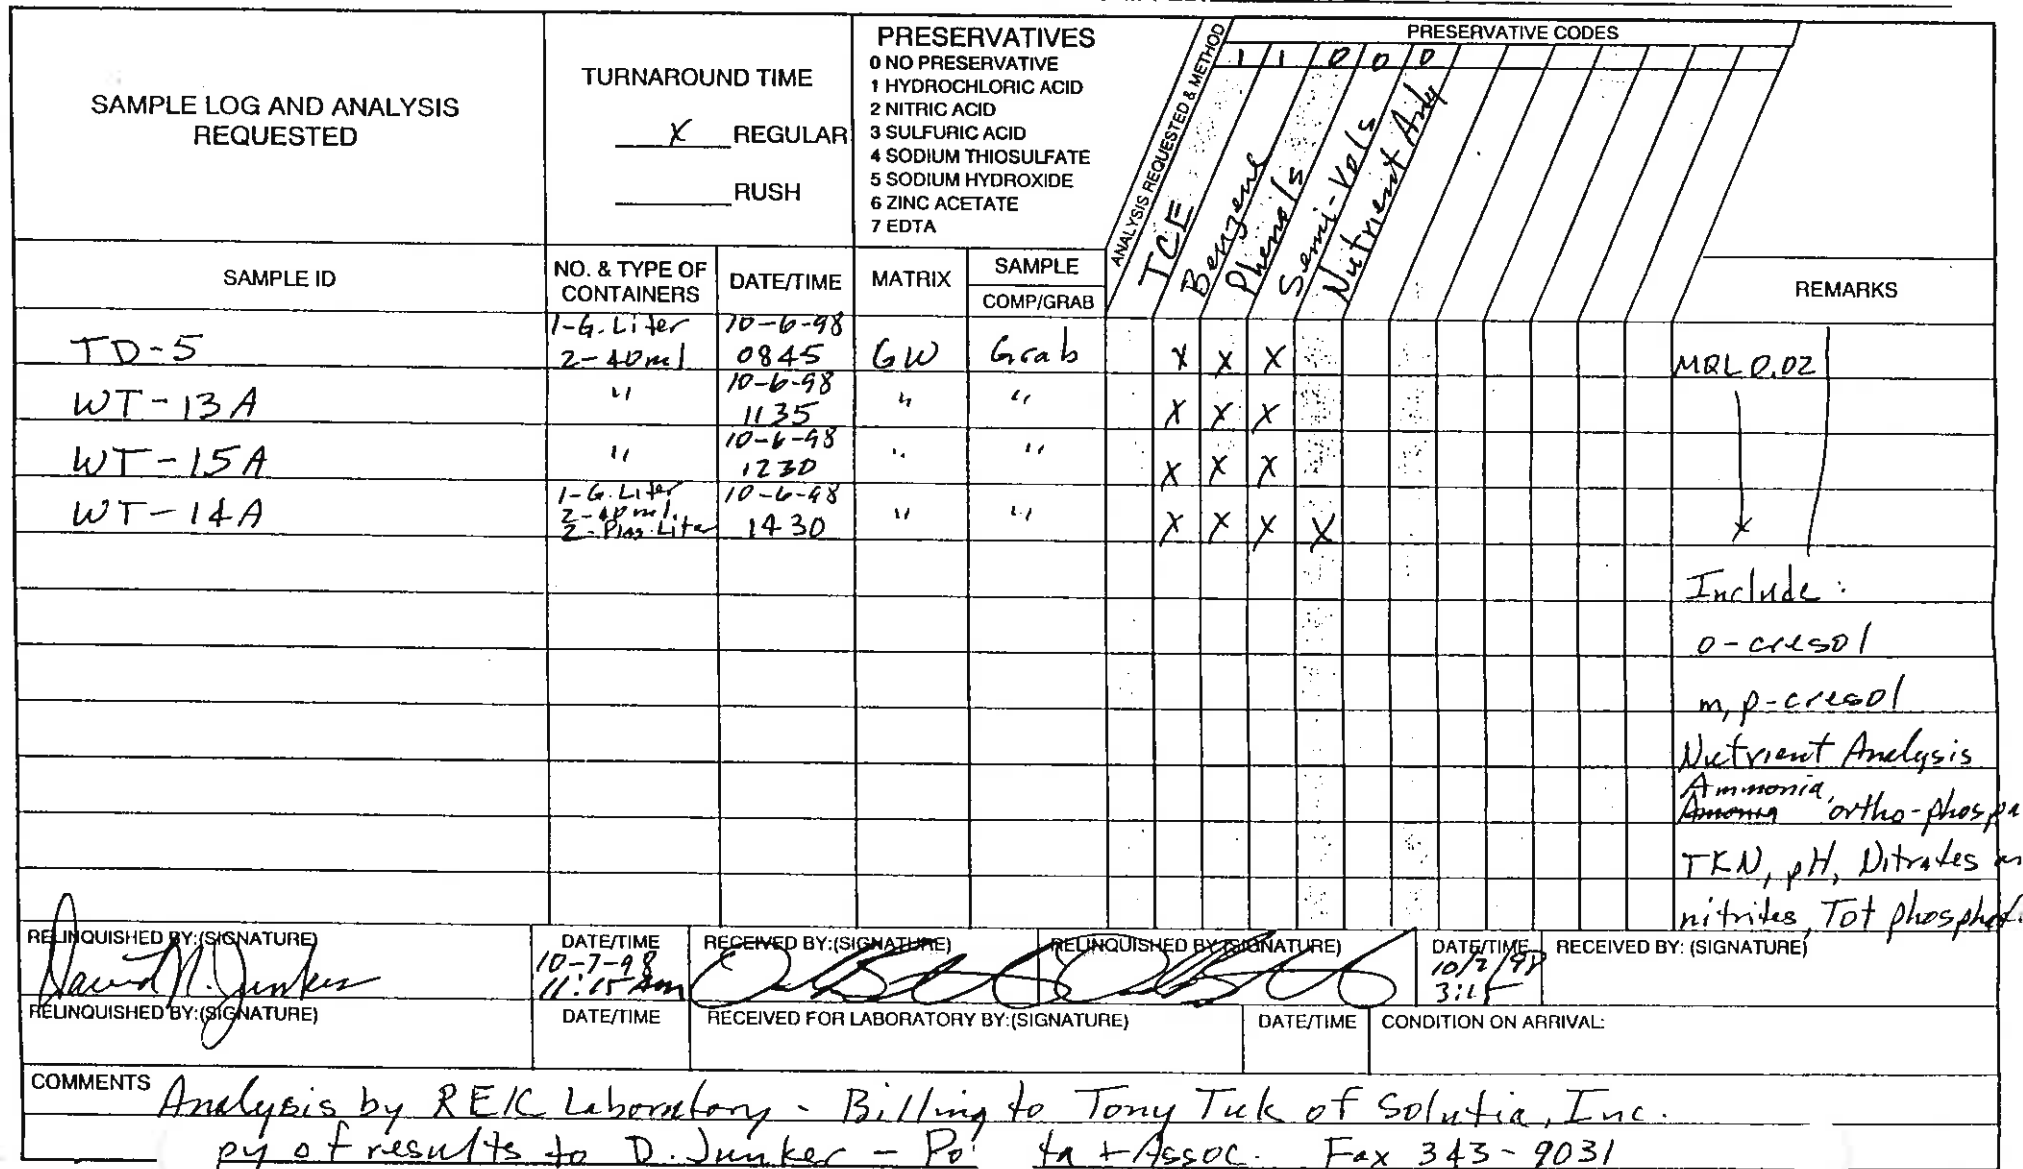 SAMPLE LOG AND ANALYSIS
REQUESTED
TURNAROUND TIME
X REGULAR
RUSH
PRESERVATIVES
0 NO PRESERVATIVE
1 HYDROCHLORIC ACID
2 NITRIC ACID
3 SULFURIC ACID
4 SODIUM THIOSULFATE
5 SODIUM HYDROXIDE
6 ZINC ACETATE
7 EDTA
ANALYSIS REQUESTED & METHOD
PRESERVATIVE CODES
1 1 0 0 0
TCE
Benzene
Phenols
Semi-Vols
Nutrient Anly
SAMPLE ID
NO. & TYPE OF
CONTAINERS
DATE/TIME
MATRIX
SAMPLE
COMP/GRAB
REMARKS
TD-5 1-G. Liter 2-40ml 10-6-98 0845 GW Grab X X X MQL 0.02
WT-13A " 10-6-98 1135 " " X X X
WT-15A " 10-6-98 1230 " " X X X
WT-14A 1-G. Liter 2-40ml. 2-Plas. Liter 10-6-98 1430 " " X X X X
Include:
o-cresol
m, p-cresol
Nutrient Analysis
Ammonia,
ortho-phospa
TKN, pH, Nitrates an
nitrites, Tot phosphat
RELINQUISHED BY:(SIGNATURE)
David N. Junker
DATE/TIME
10-7-98
11:15 Am
RECEIVED BY:(SIGNATURE)
RELINQUISHED BY:(SIGNATURE)
DATE/TIME
3:15
RECEIVED BY: (SIGNATURE)
RELINQUISHED BY:(SIGNATURE)
DATE/TIME
RECEIVED FOR LABORATORY BY:(SIGNATURE)
DATE/TIME
CONDITION ON ARRIVAL:
COMMENTS Analysis by REIC Laboratory - Billing to Tony Tuk of Solutia, Inc.
py of results to D. Junker - Po ta + Assoc. Fax 343-9031